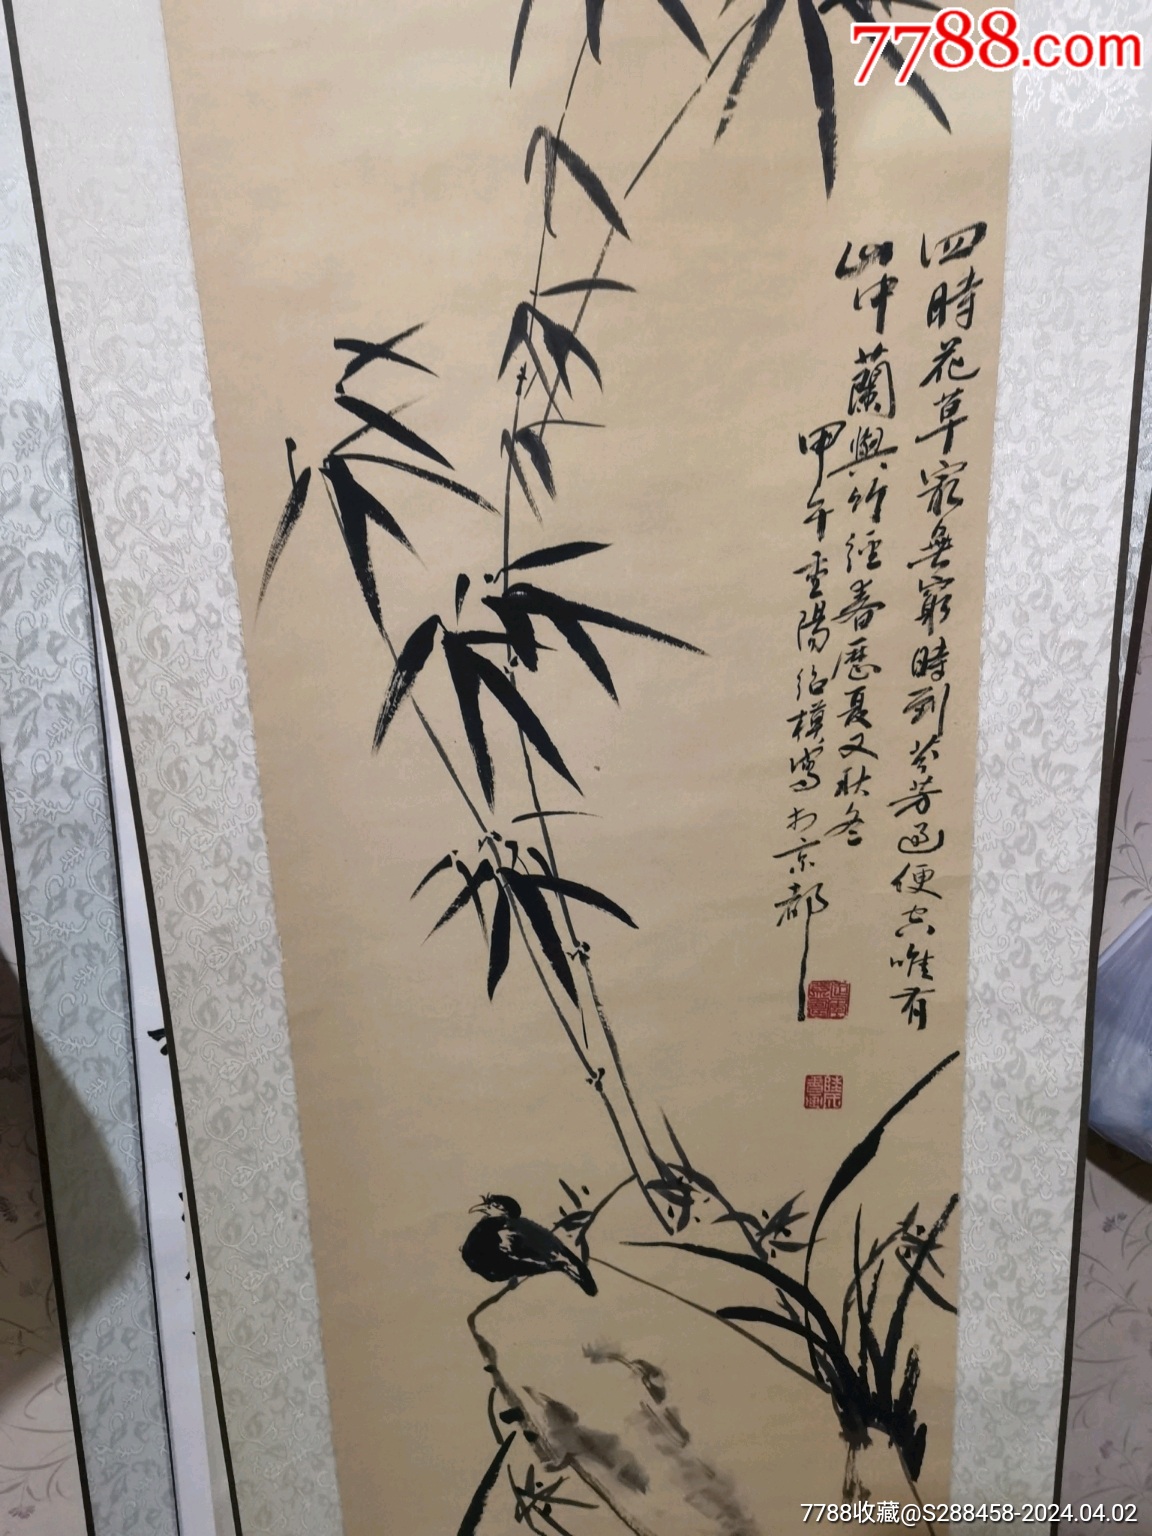 7788.com
四時花草最無窮時到芬芳過便空唯有
山中蘭與竹經春歷夏又秋冬
甲午重陽紹模寫於京都
7788收藏@S288458-2024.04.02